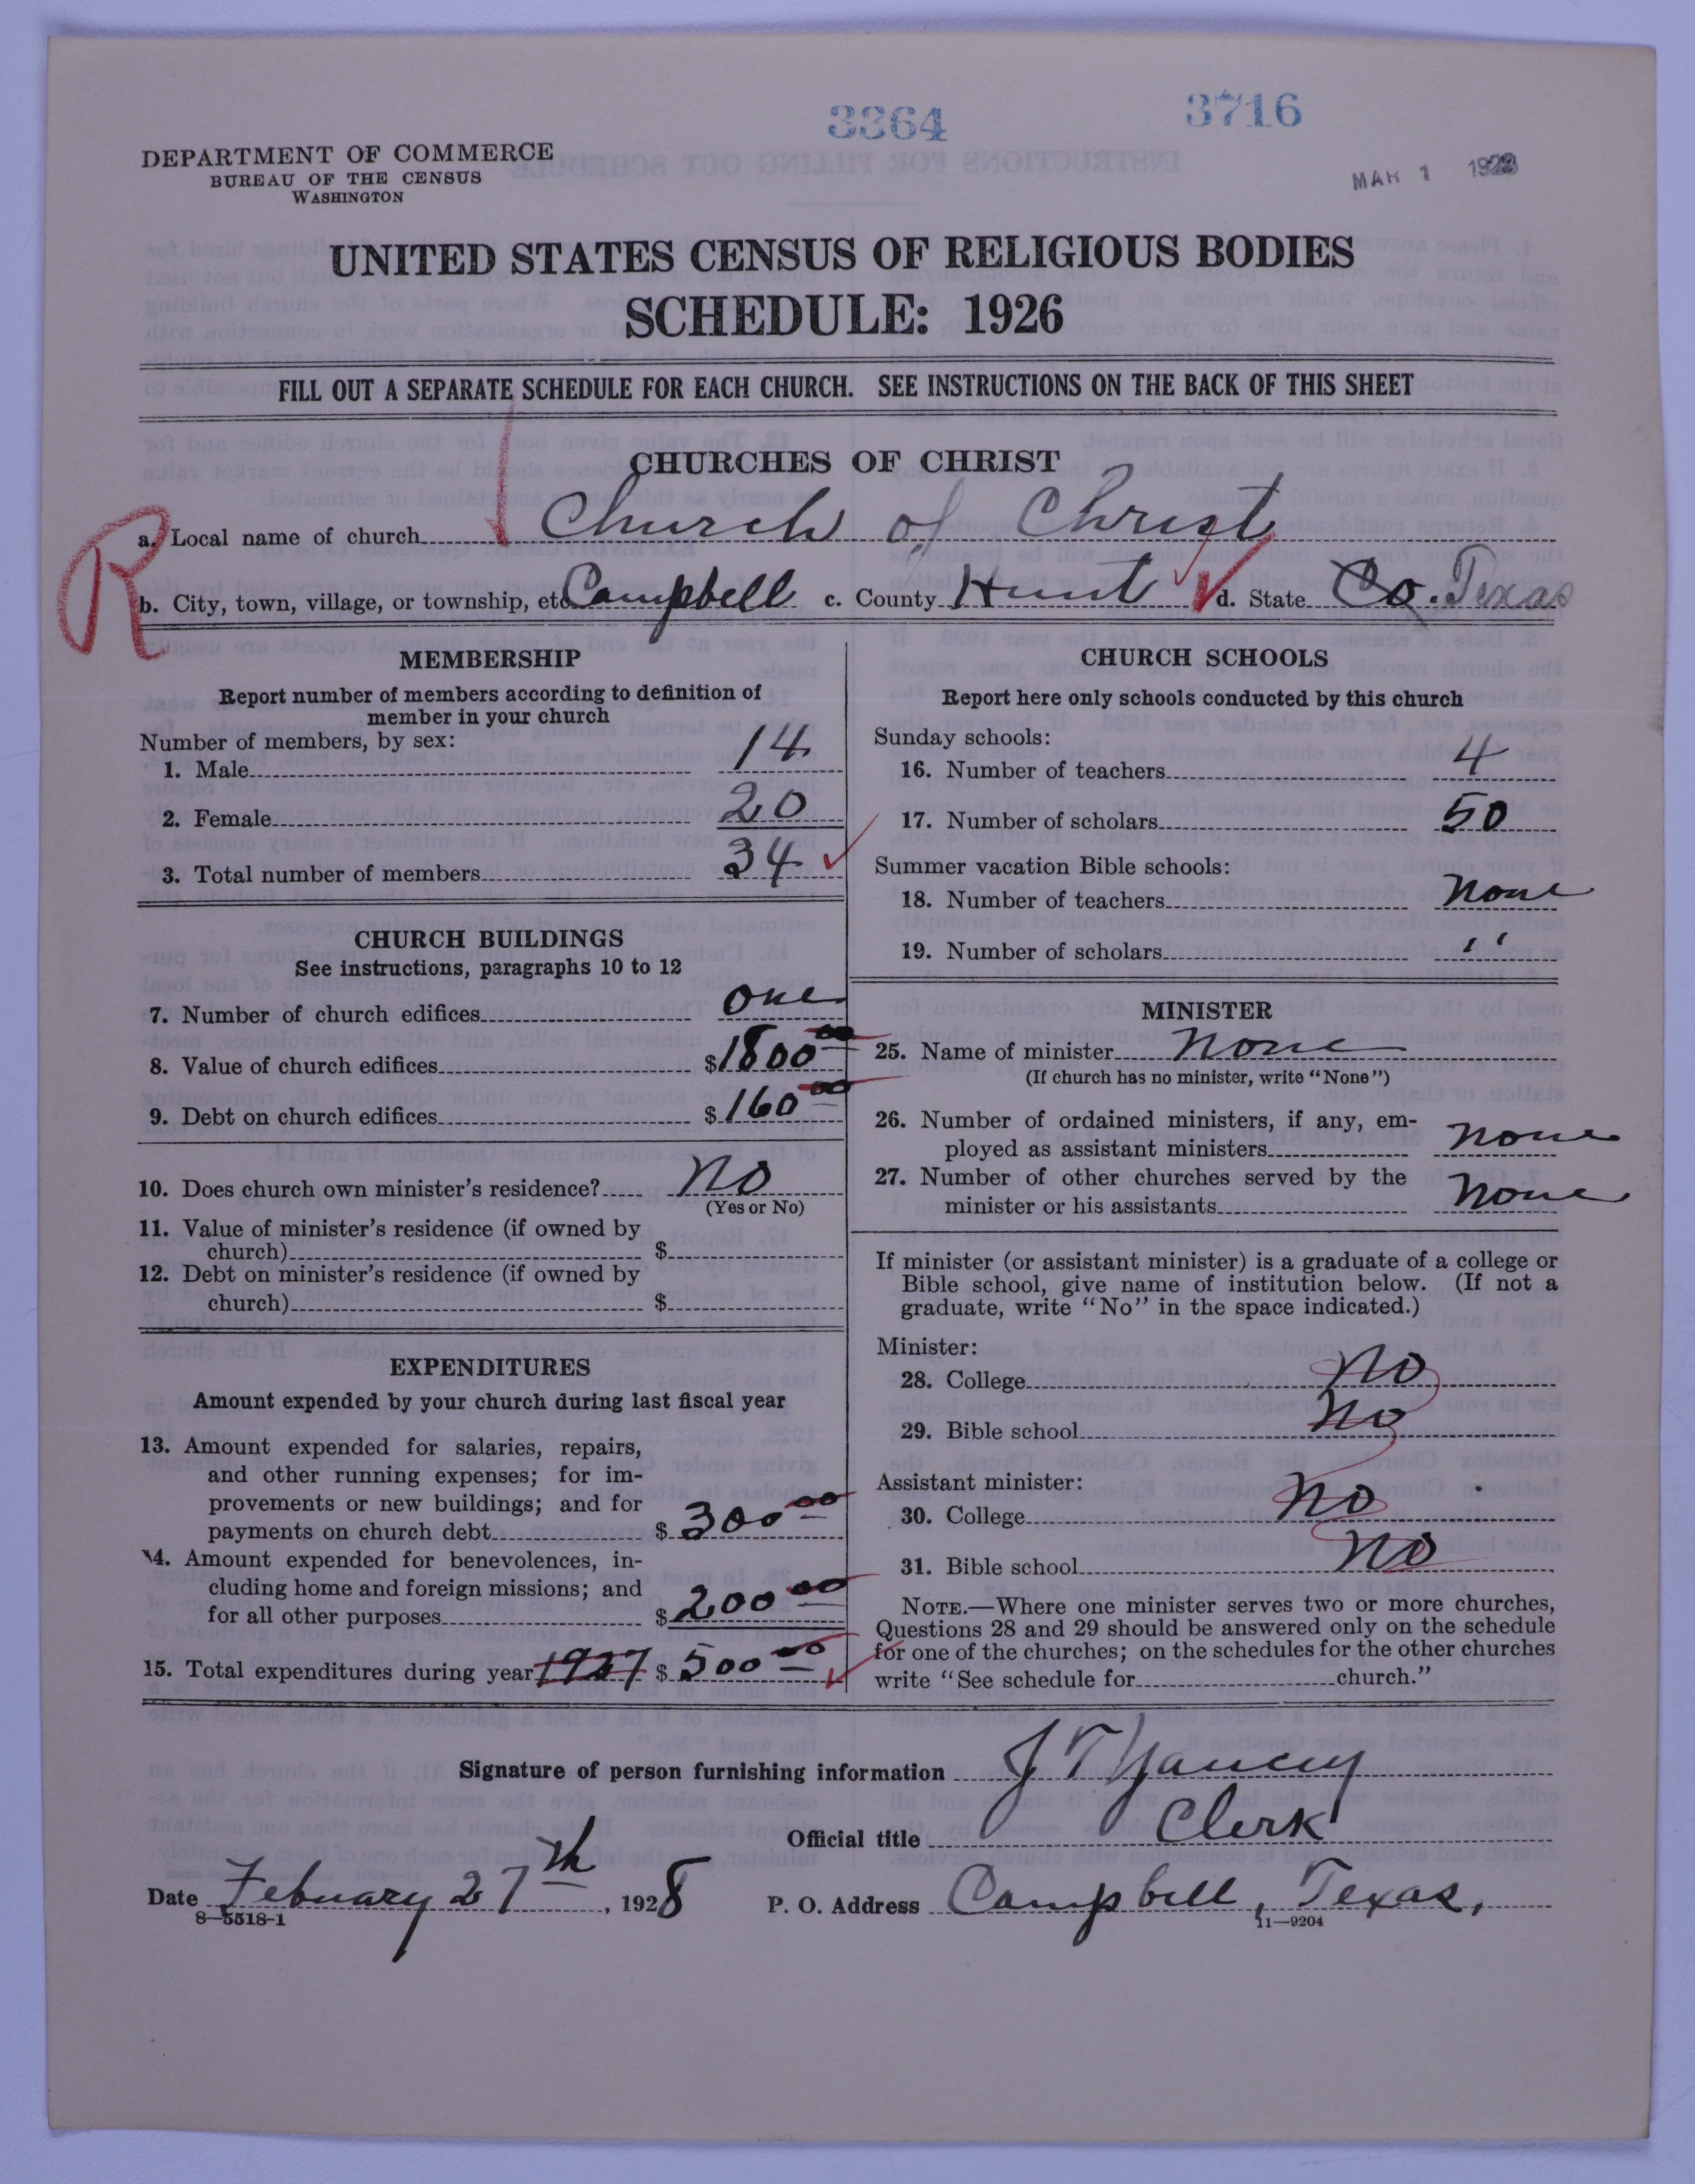 3364 3716
DEPARTMENT OF COMMERCE
BUREAU OF THE CENSUS
WASHINGTON
MAR 1 1928
UNITED STATES CENSUS OF RELIGIOUS BODIES
SCHEDULE: 1926
FILL OUT A SEPARATE SCHEDULE FOR EACH CHURCH. SEE INSTRUCTIONS ON THE BACK OF THIS SHEET
CHURCHES OF CHRIST
R
a. Local name of church Church of Christ
b. City, town, village, or township, etc. Campbell c. County Hunt d. State Co. Texas
MEMBERSHIP
Report number of members according to definition of
member in your church
Number of members, by sex:
1. Male 14
2. Female 20
3. Total number of members 34
CHURCH BUILDINGS
See instructions, paragraphs 10 to 12
7. Number of church edifices one
8. Value of church edifices $1800 00
9. Debt on church edifices $160 00
10. Does church own minister's residence? No
(Yes or No)
11. Value of minister's residence (if owned by
church) $
12. Debt on minister's residence (if owned by
church) $
EXPENDITURES
Amount expended by your church during last fiscal year
13. Amount expended for salaries, repairs,
and other running expenses; for im-
provements or new buildings; and for
payments on church debt $ 300 00
14. Amount expended for benevolences, in-
cluding home and foreign missions; and
for all other purposes $ 200 00
15. Total expenditures during year 1927 $ 500 00
CHURCH SCHOOLS
Report here only schools conducted by this church
Sunday schools:
16. Number of teachers 4
17. Number of scholars 50
Summer vacation Bible schools:
18. Number of teachers none
19. Number of scholars ''
MINISTER
25. Name of minister none
(If church has no minister, write "None")
26. Number of ordained ministers, if any, em-
ployed as assistant ministers none
27. Number of other churches served by the
minister or his assistants none
If minister (or assistant minister) is a graduate of a college or
Bible school, give name of institution below. (If not a
graduate, write "No" in the space indicated.)
Minister:
28. College No
29. Bible school No
Assistant minister:
30. College No
31. Bible school No
NOTE.—Where one minister serves two or more churches,
Questions 28 and 29 should be answered only on the schedule
for one of the churches; on the schedules for the other churches
write "See schedule for church."
Signature of person furnishing information J T Yancey
Official title Clerk
Date February 27th, 1928 P. O. Address Campbell, Texas,
8—5518-1 11—9204